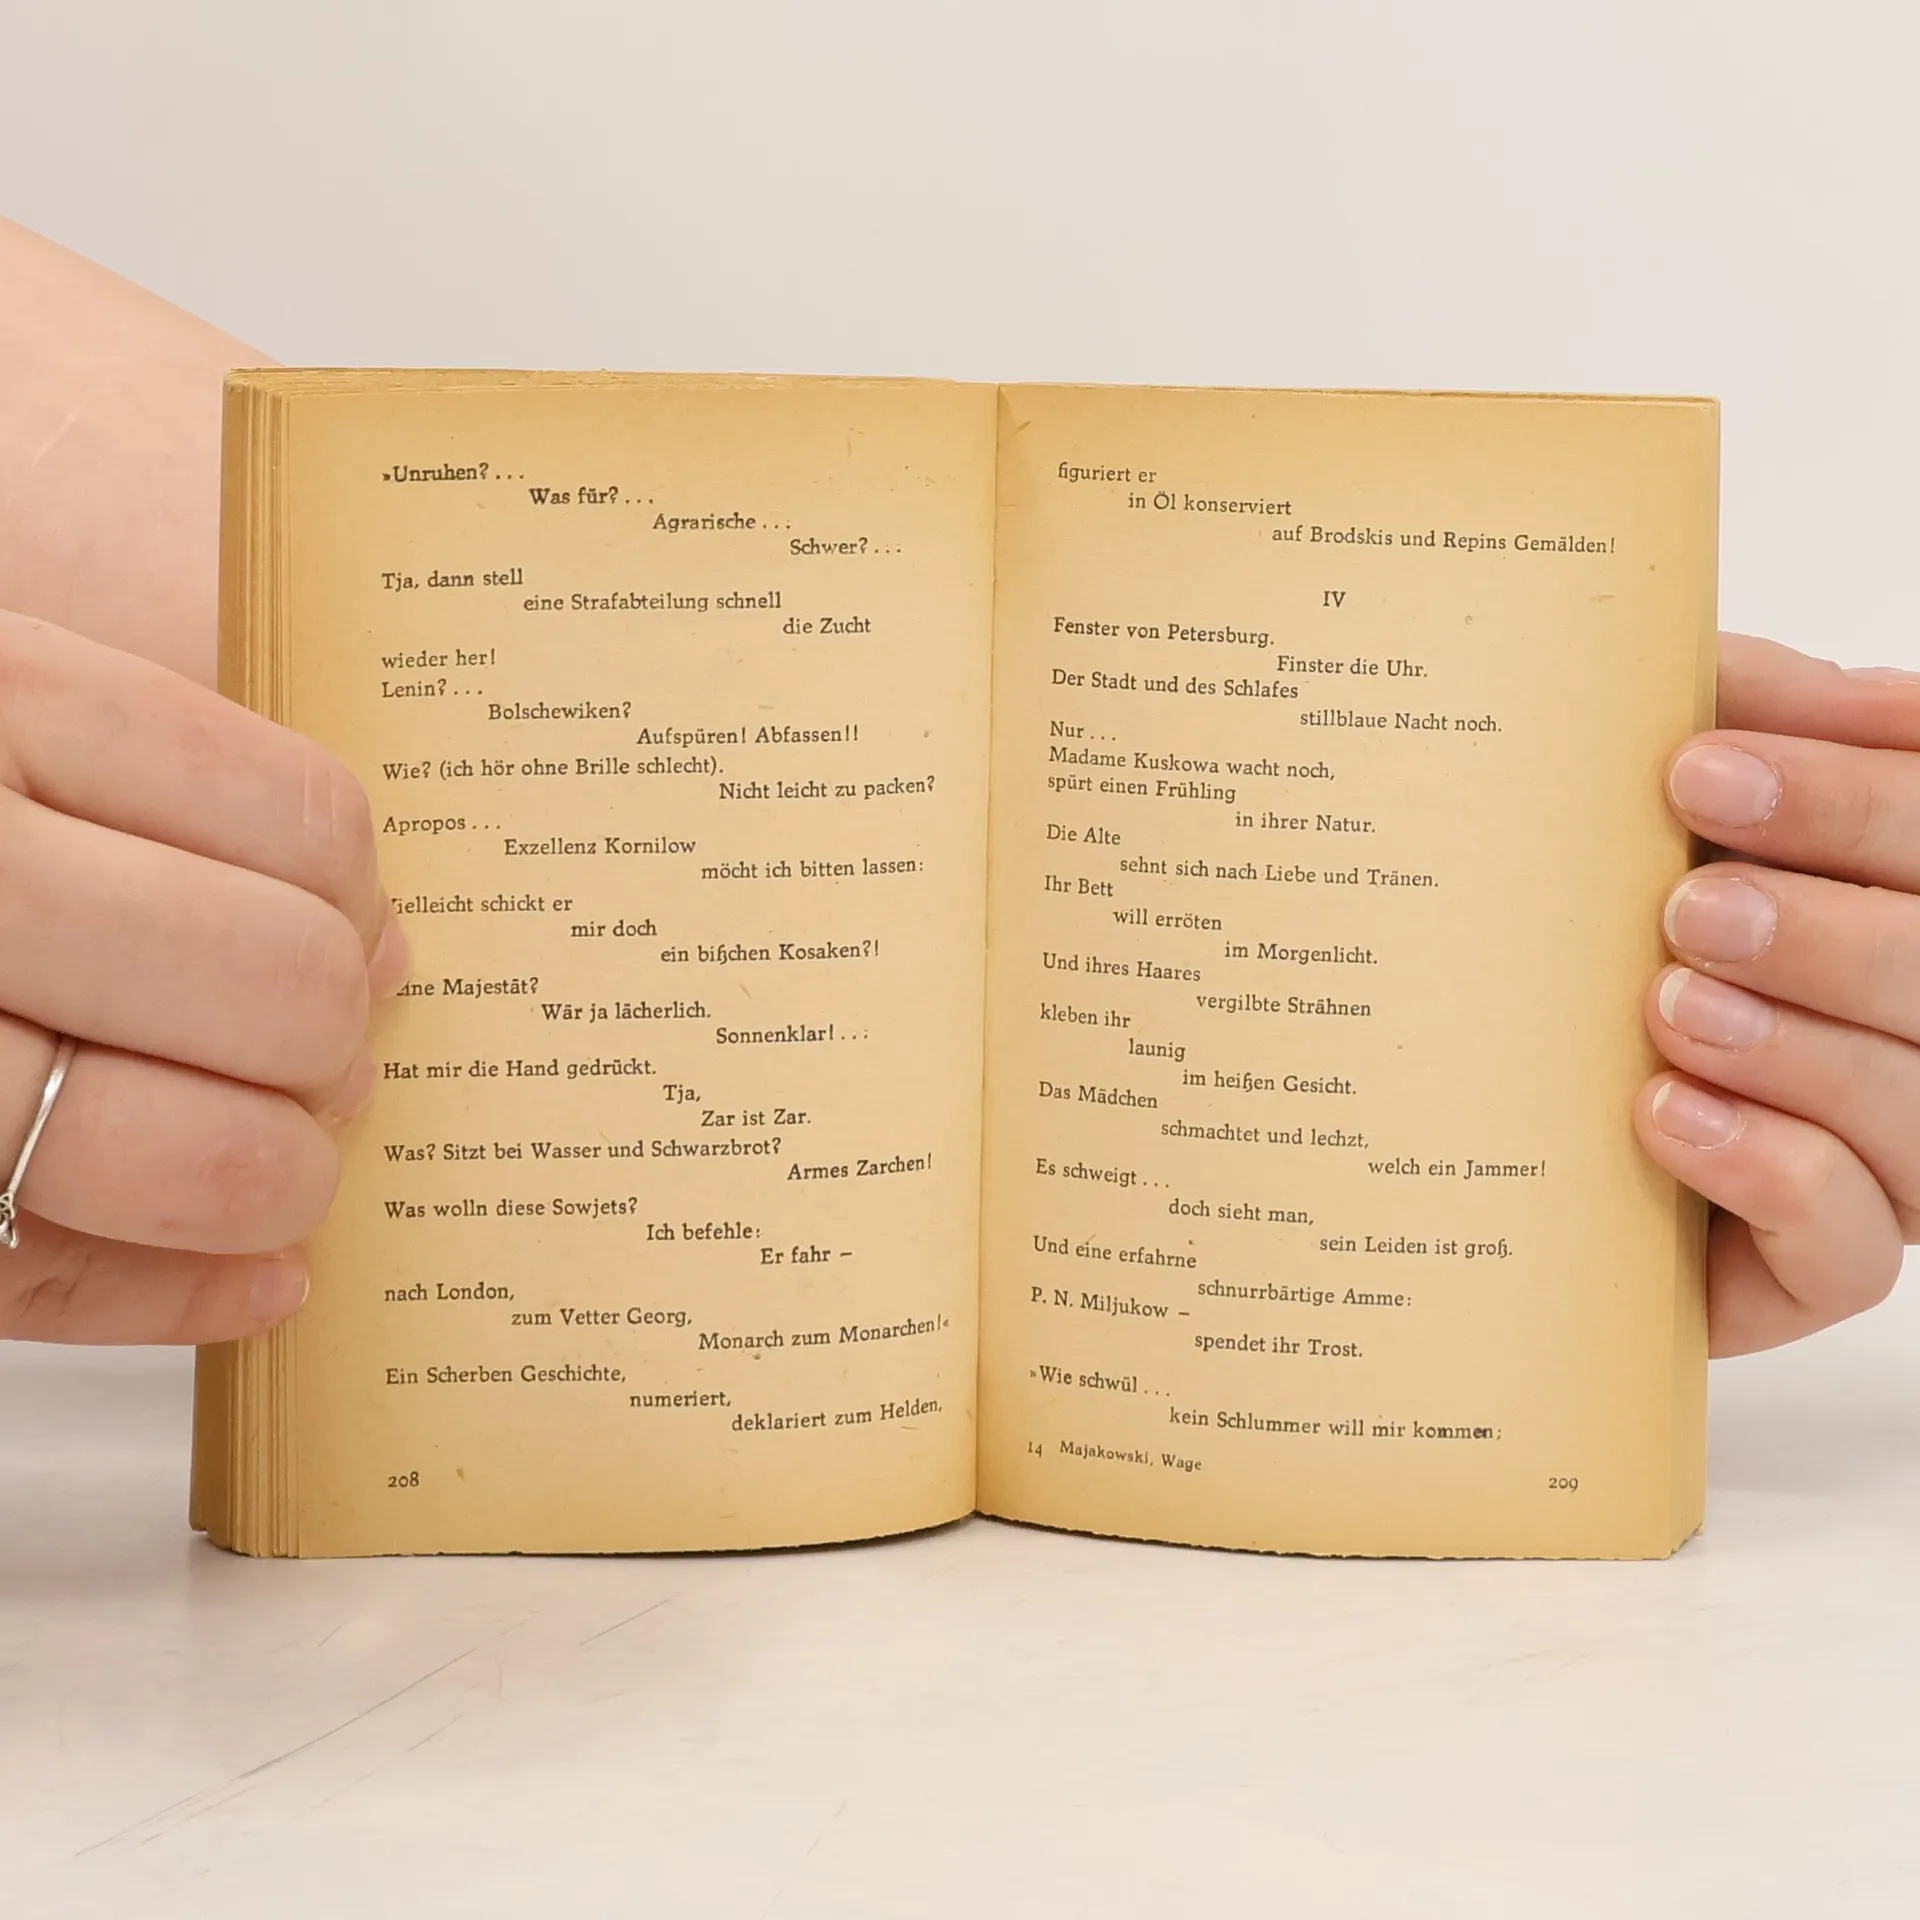 »Unruhen? . . .
Was für? . . .
Agrarische . . .
Schwer? . . .
Tja, dann stell
eine Strafabteilung schnell
die Zucht
wieder her!
Lenin? . . .
Bolschewiken?
Aufspüren! Abfassen!!
Wie? (ich hör ohne Brille schlecht).
Nicht leicht zu packen?
Apropos . . .
Exzellenz Kornilow
möcht ich bitten lassen:
ielleicht schickt er
mir doch
ein bißchen Kosaken?!
ine Majestät?
Wär ja lächerlich.
Sonnenklar! . . .
Hat mir die Hand gedrückt.
Tja,
Zar ist Zar.
Was? Sitzt bei Wasser und Schwarzbrot?
Armes Zarchen!
Was wolln diese Sowjets?
Ich befehle:
Er fahr –
nach London,
zum Vetter Georg,
Monarch zum Monarchen!«
Ein Scherben Geschichte,
numeriert,
deklariert zum Helden,
208
figuriert er
in Öl konserviert
auf Brodskis und Repins Gemälden!
IV
Fenster von Petersburg.
Finster die Uhr.
Der Stadt und des Schlafes
stillblaue Nacht noch.
Nur . . .
Madame Kuskowa wacht noch,
spürt einen Frühling
in ihrer Natur.
Die Alte
sehnt sich nach Liebe und Tränen.
Ihr Bett
will erröten
im Morgenlicht.
Und ihres Haares
vergilbte Strähnen
kleben ihr
launig
im heißen Gesicht.
Das Mädchen
schmachtet und lechzt,
welch ein Jammer!
Es schweigt . . .
doch sieht man,
sein Leiden ist groß.
Und eine erfahrne
schnurrbärtige Amme:
P. N. Miljukow –
spendet ihr Trost.
»Wie schwül . . .
kein Schlummer will mir kommen;
14 Majakowski, Wage
209